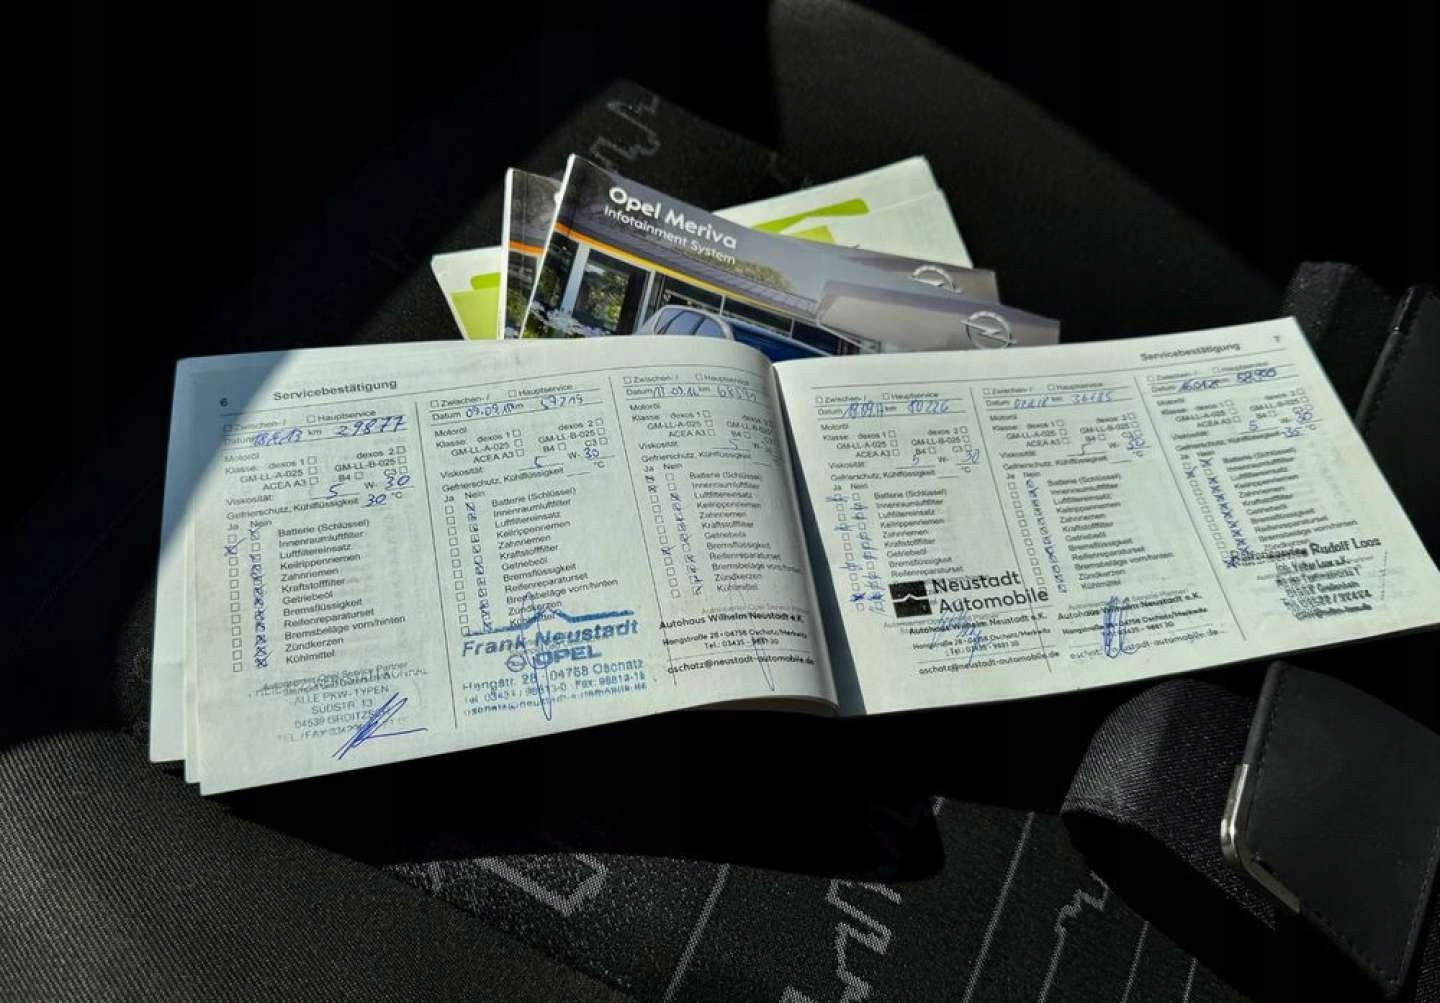 Opel Meriva
Infotainment System
6
Servicebestätigung
Zwischen- / Hauptservice
Datum km 29877
Motoröl
Klasse: dexos 1 dexos 2
GM-LL-A-025 GM-LL-B-025
ACEA A3 B4 C3
Viskosität: 5 W- 30
Gefrierschutz, Kühlflüssigkeit 30 °C
Ja Nein
Batterie (Schlüssel)
Innenraumluftfilter
Luftfiltereinsatz
Keilrippenriemen
Zahnriemen
Kraftstofffilter
Getriebeöl
Bremsflüssigkeit
Reifenreparaturset
Bremsbeläge vorn/hinten
Zündkerzen
Kühlmittel
ALLE PKW-TYPEN
SÜDSTR. 13
04539 GROITZSCH
Zwischen- / Hauptservice
Datum km
Motoröl
Klasse: dexos 1 dexos 2
GM-LL-A-025 GM-LL-B-025
ACEA A3 B4 C3
Viskosität: 5 W- 30
Gefrierschutz, Kühlflüssigkeit °C
Ja Nein
Batterie (Schlüssel)
Innenraumluftfilter
Luftfiltereinsatz
Keilrippenriemen
Zahnriemen
Kraftstofffilter
Getriebeöl
Bremsflüssigkeit
Reifenreparaturset
Bremsbeläge vorn/hinten
Zündkerzen
Kühlmittel
Frank Neustadt
OPEL
Hangstr. 28 · 04758 Oschatz
Zwischen- / Hauptservice
Datum km
Motoröl
Klasse: dexos 1 dexos 2
GM-LL-A-025 GM-LL-B-025
ACEA A3 B4 C3
Viskosität: 5 W- 30
Gefrierschutz, Kühlflüssigkeit °C
Ja Nein
Batterie (Schlüssel)
Innenraumluftfilter
Luftfiltereinsatz
Keilrippenriemen
Zahnriemen
Kraftstofffilter
Getriebeöl
Bremsflüssigkeit
Reifenreparaturset
Bremsbeläge vorn/hinten
Zündkerzen
Kühlmittel
Autohaus Wilhelm Neustadt e.K.
Hangstraße 28 · 04758 Oschatz/Merkwitz
oschatz@neustadt-automobile.de
Servicebestätigung
7
Zwischen- / Hauptservice
Datum km
Motoröl
Klasse: dexos 1 dexos 2
GM-LL-A-025 GM-LL-B-025
ACEA A3 B4 C3
Viskosität: 5 W- 30
Gefrierschutz, Kühlflüssigkeit °C
Ja Nein
Batterie (Schlüssel)
Innenraumluftfilter
Luftfiltereinsatz
Keilrippenriemen
Zahnriemen
Kraftstofffilter
Getriebeöl
Bremsflüssigkeit
Reifenreparaturset
Neustadt
Automobile
Autohaus Wilhelm Neustadt e.K.
Hangstraße 28 · 04758 Oschatz/Merkwitz
oschatz@neustadt-automobile.de
Zwischen- / Hauptservice
Datum km
Motoröl
Klasse: dexos 1 dexos 2
GM-LL-A-025 GM-LL-B-025
ACEA A3 B4 C3
Viskosität: 5 W- 30
Gefrierschutz, Kühlflüssigkeit °C
Ja Nein
Batterie (Schlüssel)
Innenraumluftfilter
Luftfiltereinsatz
Keilrippenriemen
Zahnriemen
Kraftstofffilter
Getriebeöl
Bremsflüssigkeit
Reifenreparaturset
Bremsbeläge vorn/hinten
Zündkerzen
Kühlmittel
Autohaus Wilhelm Neustadt e.K.
Hangstraße 28 · 04758 Oschatz/Merkwitz
Zwischen- / Hauptservice
Datum km
Motoröl
Klasse: dexos 1 dexos 2
GM-LL-A-025 GM-LL-B-025
ACEA A3 B4 C3
Viskosität: 5 W- 30
Gefrierschutz, Kühlflüssigkeit °C
Ja Nein
Batterie (Schlüssel)
Innenraumluftfilter
Luftfiltereinsatz
Keilrippenriemen
Zahnriemen
Kraftstofffilter
Getriebeöl
Bremsflüssigkeit
Reifenreparaturset
Bremsbeläge vorn/hinten
Zündkerzen
Rudolf Loos